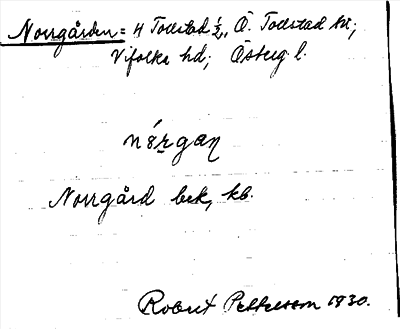 Norrgården = H Tollstad ½, Ö. Tollstad sn;
Vifolka hd; Österg. l.
nȯrgan
Norrgård bek, kb.
Robert Pettersson 1930.